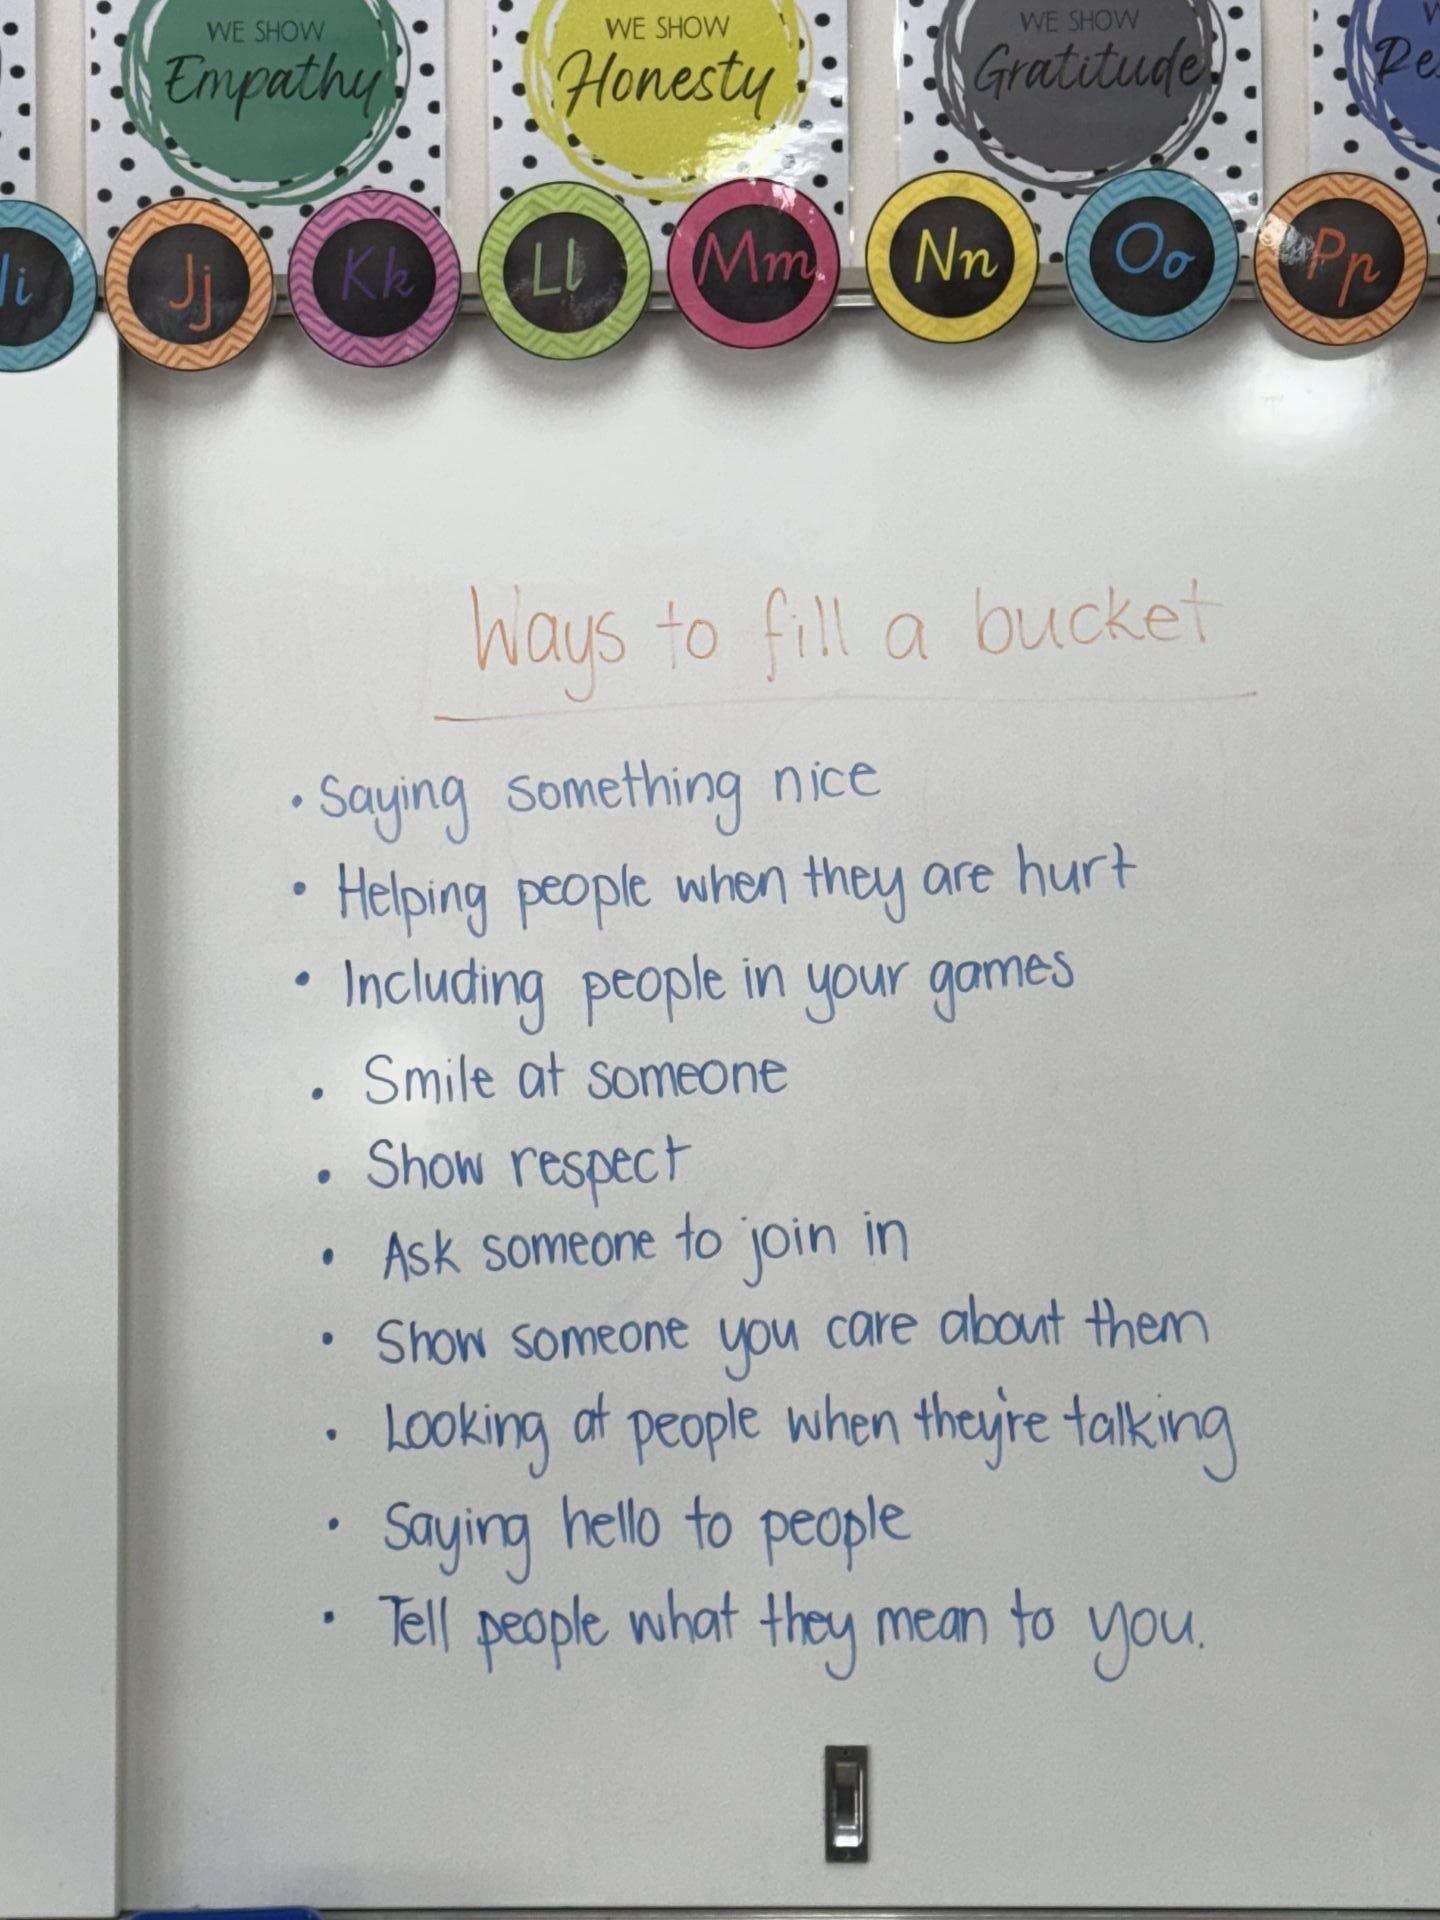 WE SHOW
Empathy
WE SHOW
Honesty
WE SHOW
Gratitude
Jj
Kk
Ll
Mm
Nn
Oo
Pp
Ways to fill a bucket
• Saying something nice
• Helping people when they are hurt
• Including people in your games
• Smile at someone
• Show respect
• Ask someone to join in
• Show someone you care about them
• Looking at people when they're talking
• Saying hello to people
• Tell people what they mean to you.